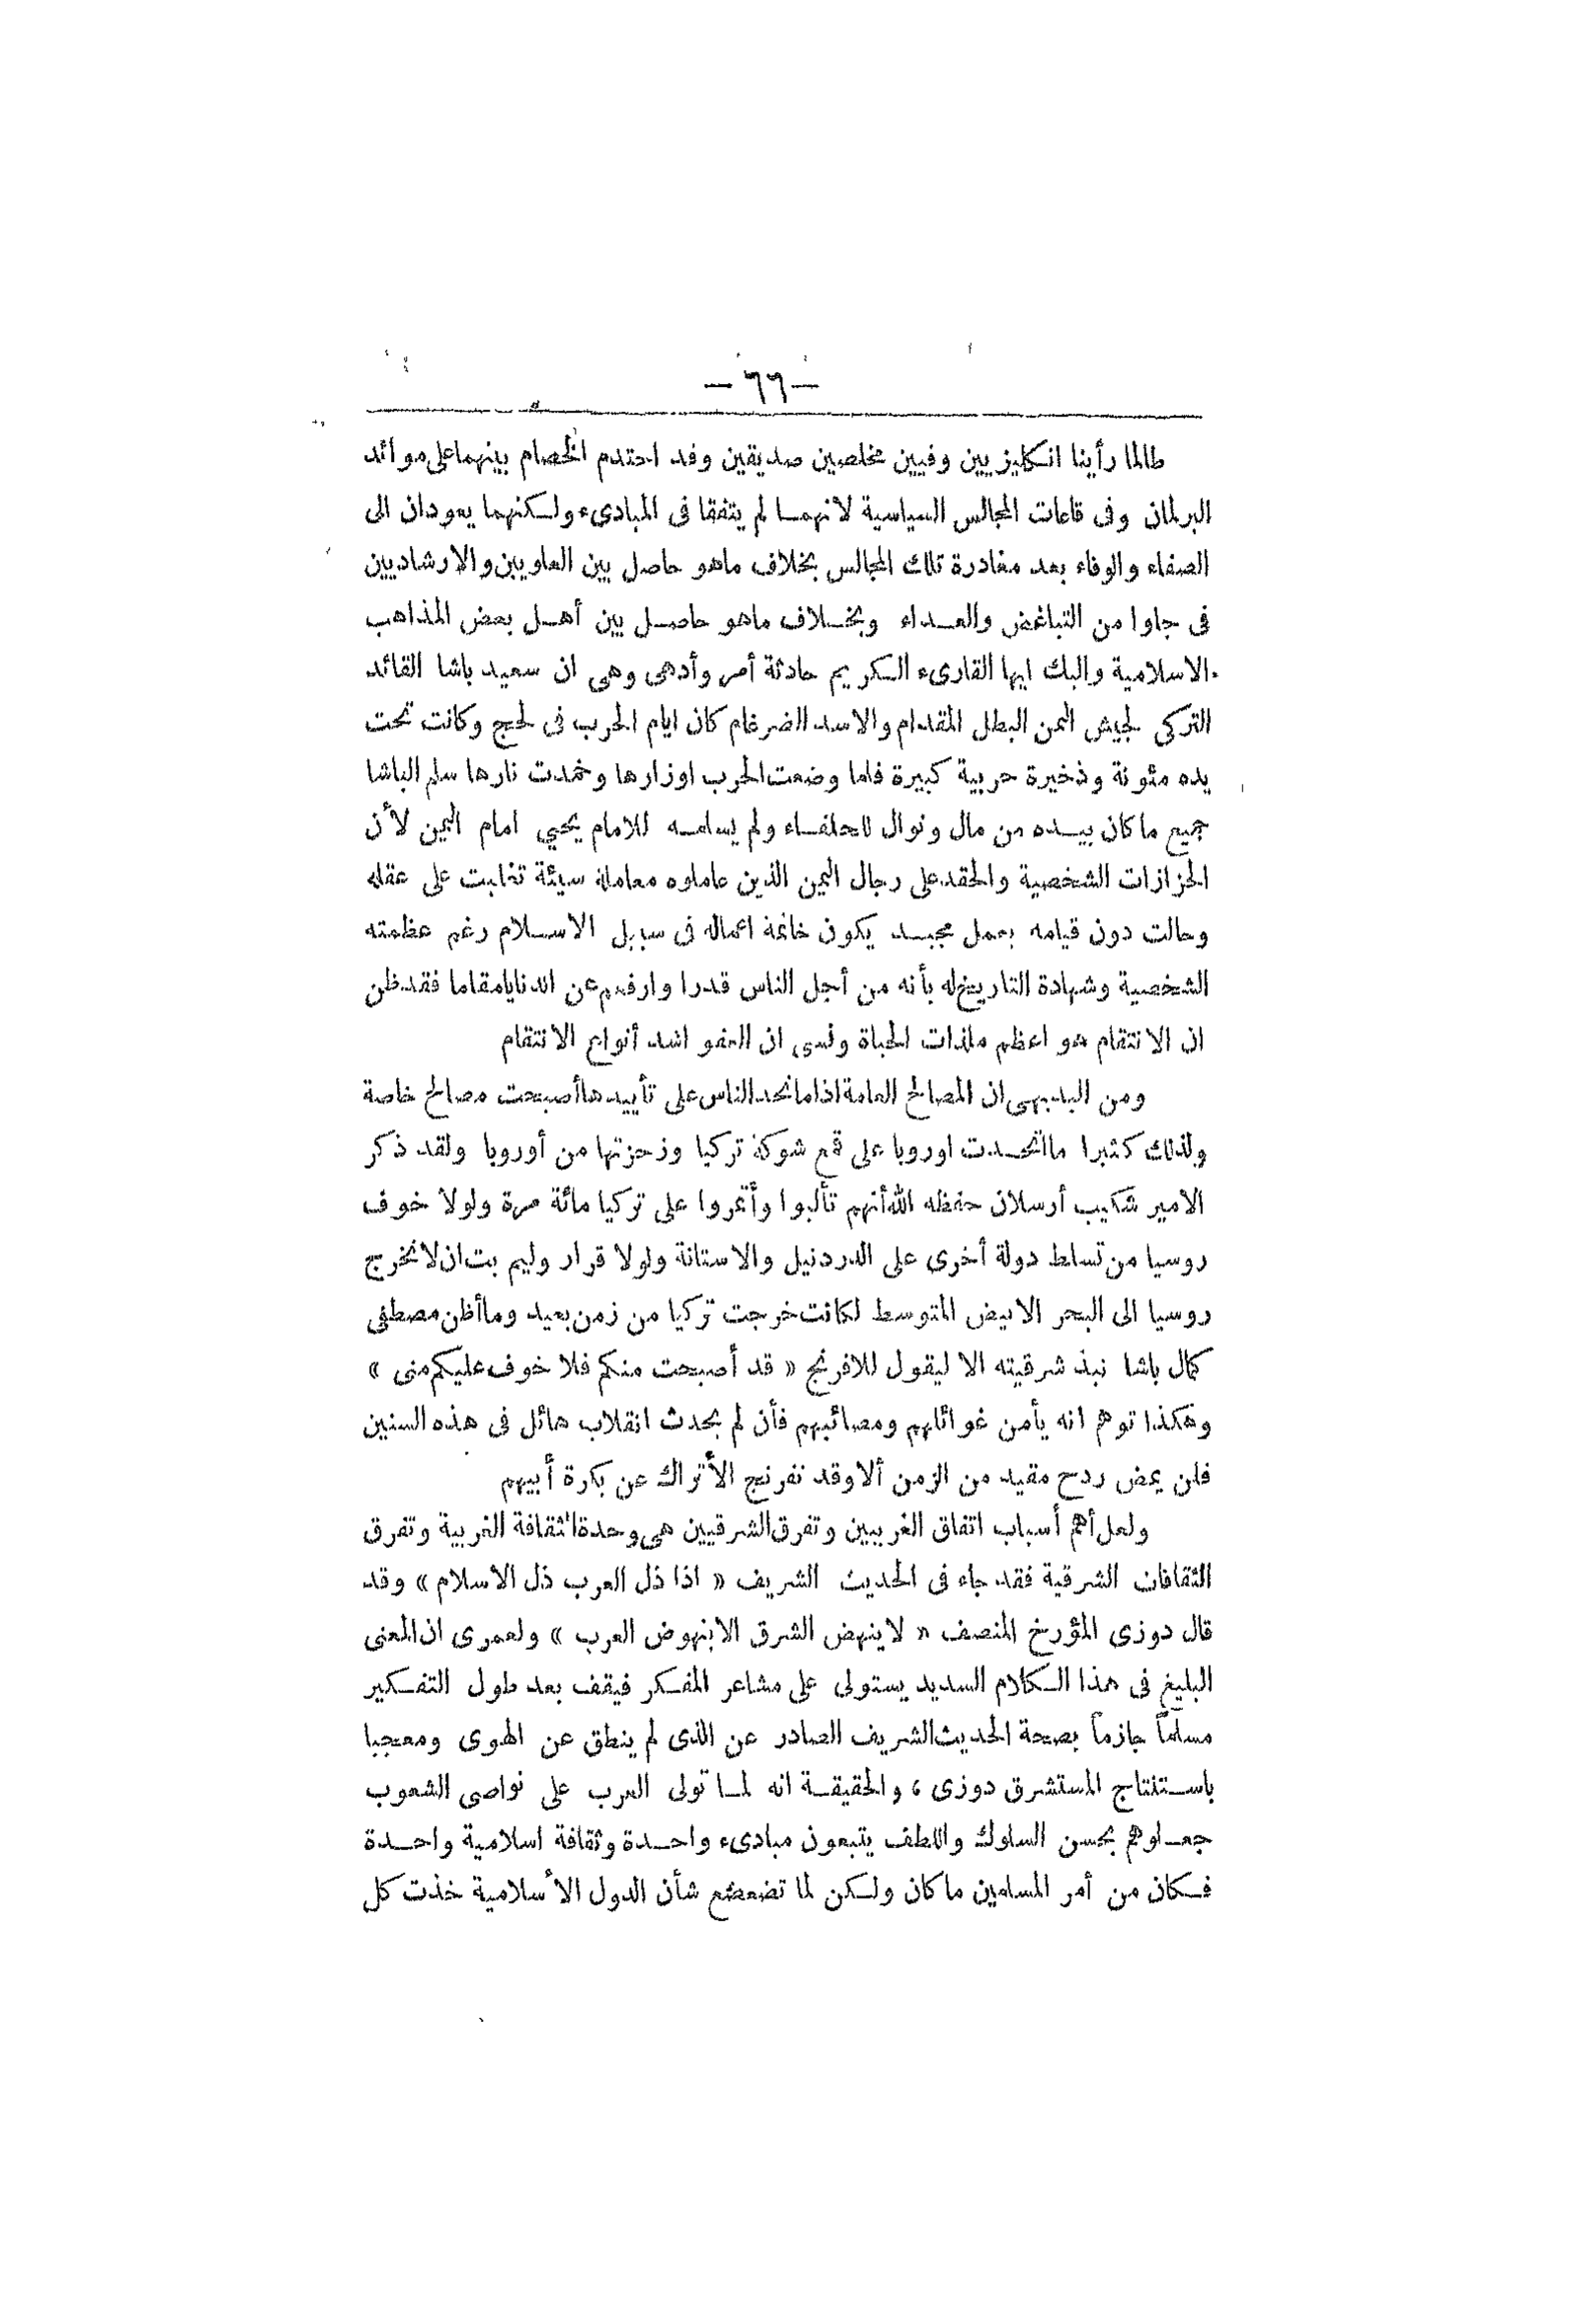 — ٦٦ —
طالما رأينا انكليزيين وفيين مخلصين صديقين وقد احتدم الخصام بينهما على موائد
البرلمان وفى قاعات المجالس السياسية لانهما لم يتفقا فى المبادىء ولكنهما يعودان الى
الصفاء والوفاء بعد مغادرة تلك المجالس بخلاف ماهو حاصل بين العلويين والارشاديين
فى جاوا من التباغض والعداء وبخلاف ماهو حاصل بين أهل بعض المذاهب
الاسلامية واليك ايها القارىء الكريم حادثة أمر وأدهى وهى ان سعيد باشا القائد
التركى لجيش اليمن البطل المقدام والاسد الضرغام كان ايام الحرب فى لحج وكانت تحت
يده مئونة وذخيرة حربية كبيرة فلما وضعت الحرب اوزارها وخمدت نارها سلم الباشا
جميع ما كان بيده من مال ونوال للحلفاء ولم يسلمه للامام يحيي امام اليمن لأن
الحزازات الشخصية والحقد على رجال اليمن الذين عاملوه معاملة سيئة تغلبت على عقله
وحالت دون قيامه بعمل مجيد يكون خاتمة اعماله فى سبيل الاسلام رغم عظمته
الشخصية وشهادة التاريخ له بأنه من أجل الناس قدرا وارفعهم عن الدنايا مقاما فقد ظن
ان الانتقام هو اعظم ملذات الحياة ونسى ان العفو اشد أنواع الانتقام
ومن البديهى ان المصالح العامة اذا ما اتحد الناس على تأييدها أصبحت مصالح خاصة
ولذلك كثيرا ما اتحدت اوروبا على قمع شوكة تركيا وزحزتها من أوروبا ولقد ذكر
الامير شكيب أرسلان حفظه الله أنهم تألبوا وأتمروا على تركيا مائة مرة ولولا خوف
روسيا من تسلط دولة أخرى على الدردنيل والاستانة ولولا قرار وليم بت ان لا تخرج
روسيا الى البحر الابيض المتوسط لكانت خرجت تركيا من زمن بعيد وما أظن مصطفى
كمال باشا نبذ شرقيته الا ليقول للافرنج « قد أصبحت منكم فلا خوف عليكم منى »
وهكذا توهم انه يأمن غوائلهم ومصائبهم فأن لم يحدث انقلاب هائل فى هذه السنين
فلن يمض ردح مقيد من الزمن ألا وقد تفرنج الأتراك عن بكرة أبيهم
ولعل أهم أسباب اتفاق الغربيين وتفرق الشرقيين هى وحدة الثقافة الغربية وتفرق
الثقافات الشرقية فقد جاء فى الحديث الشريف « اذا ذل العرب ذل الاسلام » وقد
قال دوزى المؤرخ المنصف « لا ينهض الشرق الا بنهوض العرب » ولعمرى ان المعنى
البليغ فى هذا الكلام السديد يستولى على مشاعر المفكر فيقف بعد طول التفكير
مسلماً جازماً بصحة الحديث الشريف الصادر عن الذى لم ينطق عن الهوى ومعجبا
باستنتاج المستشرق دوزى ، والحقيقة انه لما تولى العرب على نواصى الشعوب
جعلوهم بحسن السلوك واللطف يتبعون مبادىء واحدة وثقافة اسلامية واحدة
فكان من أمر المسلمين ما كان ولكن لما تضعضع شأن الدول الأسلامية خذت كل